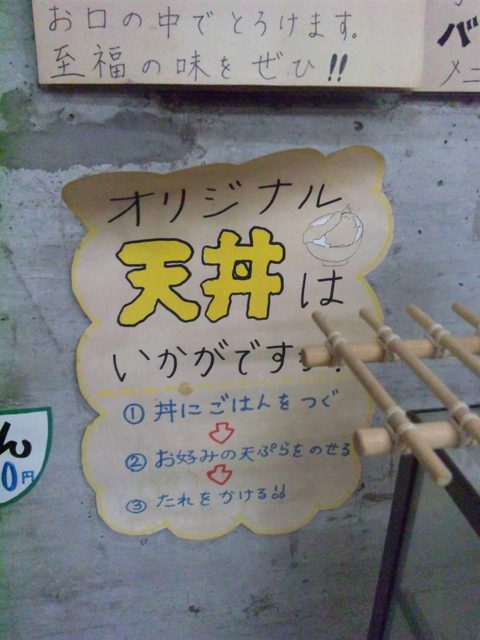 お口の中でとろけます。
至福の味をぜひ!!
バ
メニ
オリジナル
天丼は
いかがです
① 丼にごはんをつぐ
② お好みの天ぷらをのせる
③ たれをかける!!
ん
0円